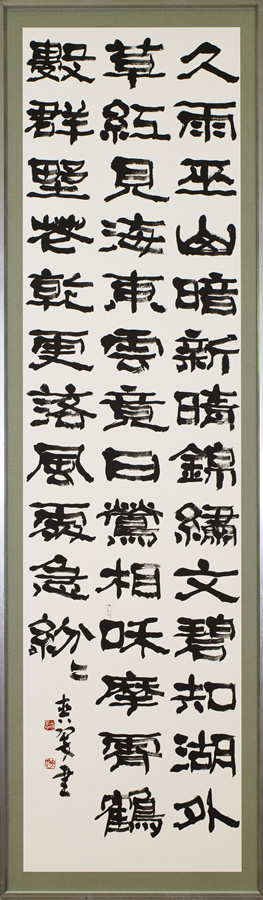 久雨巫山暗新晴錦繡文碧知湖外
草紅見海東雲竟日鶯相咊摩霄鶴
數群野花乾更落風處急紛〻
書